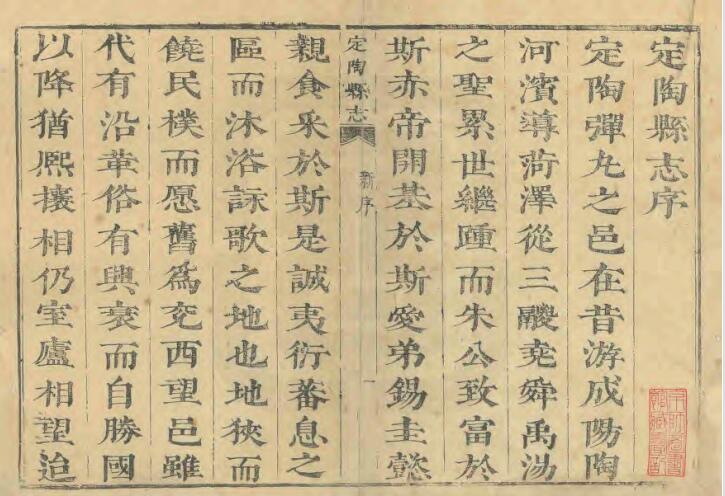 定陶縣志序
定陶彈丸之邑在昔游成陽陶
河濱導菏澤從三鬷堯舜禹湯
之聖累世繼踵而朱公致富於
斯赤帝開基於斯愛弟錫圭懿
定陶縣志 新序 一
親食采於斯是誠夷衍蕃息之
區而沐浴詠歌之地也地狹而
饒民樸而愿舊爲兗西望邑雖
代有沿革俗有興衰而自勝國
以降猶熙攘相仍室廬相望迨